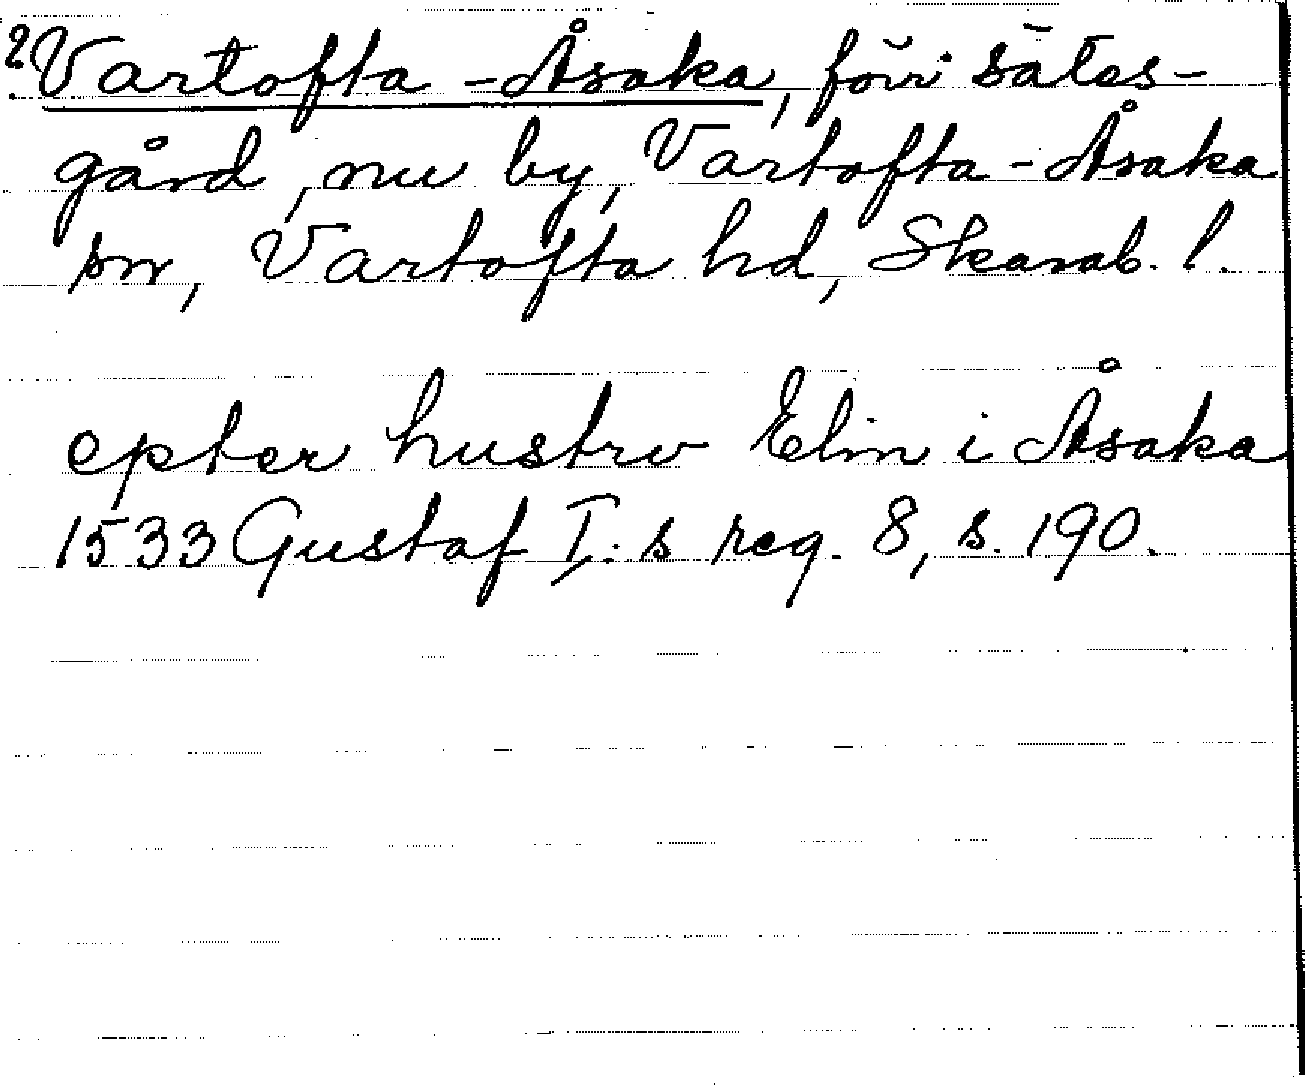 ?Vartofta-Åsaka, förr sätes-
gård, nu by, Vartofta-Åsaka
sn, Vartofta hd, Skarab. l.
epter hustrv Elin i Åsaka
1533 Gustaf I:s reg. 8, s. 190.